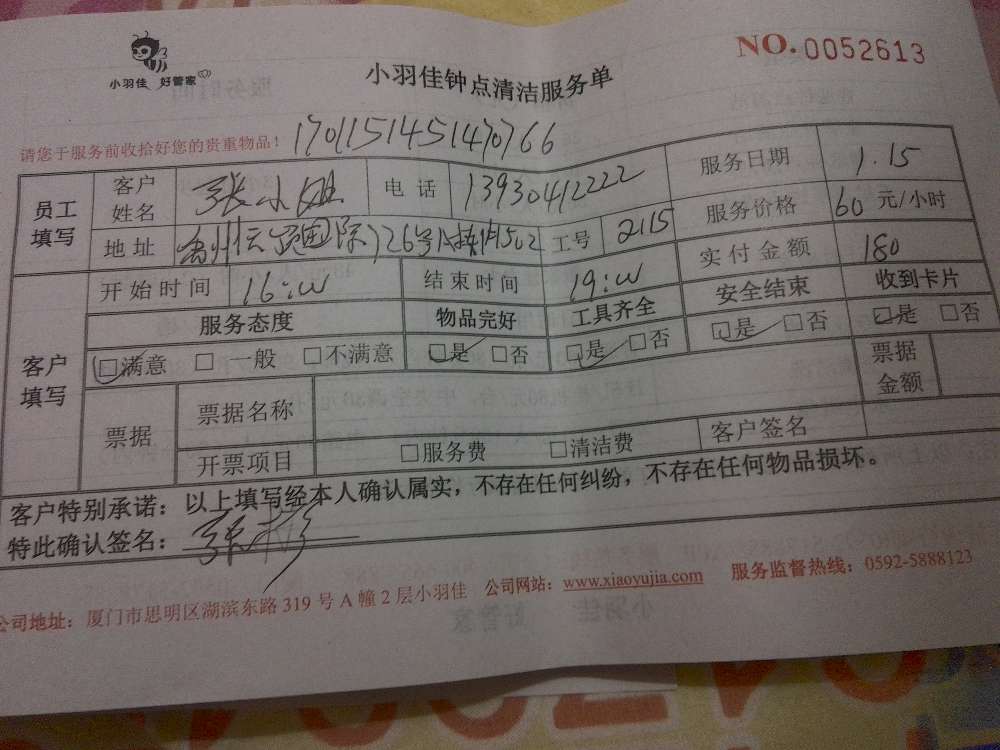 小羽佳 好管家
小羽佳钟点清洁服务单
NO.0052613
请您于服务前收拾好您的贵重物品！ 1701151451470766
员工填写 客户姓名 张小姐 电话 13930412222 服务日期 1.15
地址 国际 26号 1502 工号 2115 服务价格 60 元/小时
开始时间 16:00 结束时间 19:00 实付金额 180
客户填写 服务态度 物品完好 工具齐全 安全结束 收到卡片
☑满意 □一般 □不满意 ☑是 □否 ☑是 □否 ☑是 □否 ☑是 □否
票据 票据名称 票据金额
开票项目 □服务费 □清洁费 客户签名
客户特别承诺：以上填写经本人确认属实，不存在任何纠纷，不存在任何物品损坏。
特此确认签名： 张
公司地址：厦门市思明区湖滨东路 319 号 A 幢 2 层小羽佳 公司网站：www.xiaoyujia.com 服务监督热线：0592-5888123